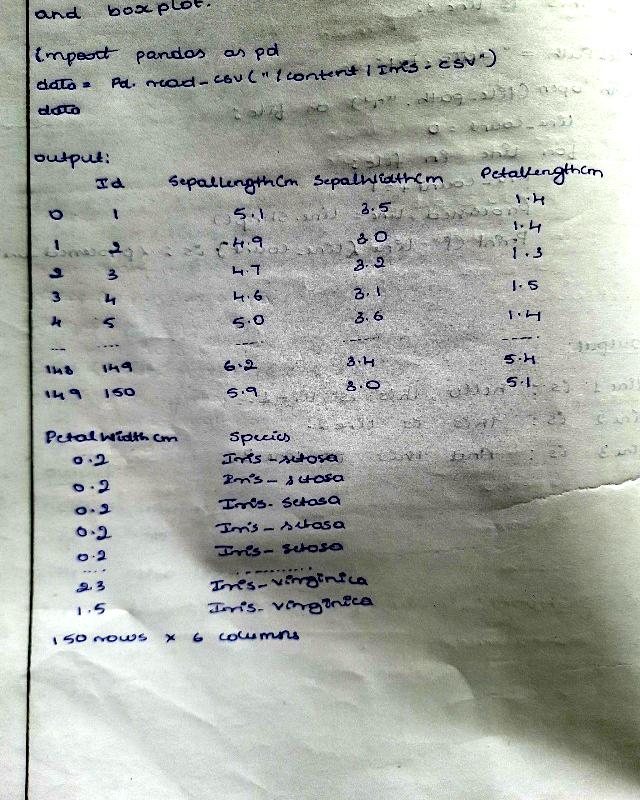 and boxplot.
import pandas as pd
data = Pd. read_csv("/content/Iris.csv")
data
output:
Id SepalLengthCm SepalWidthCm PetalLengthCm
0 1 5.1 3.5 1.4
1 2 4.9 3.0 1.4
2 3 4.7 3.2 1.3
3 4 4.6 3.1 1.5
4 5 5.0 3.6 1.4
... .... .... .... ....
148 149 6.2 3.4 5.4
149 150 5.9 3.0 5.1
PetalWidthCm Species
0.2 Iris-setosa
0.2 Iris-setosa
0.2 Iris-Setosa
0.2 Iris-setosa
0.2 Iris-Setosa
.... ..........
2.3 Iris-virginica
1.5 Iris-virginica
150 rows x 6 columns